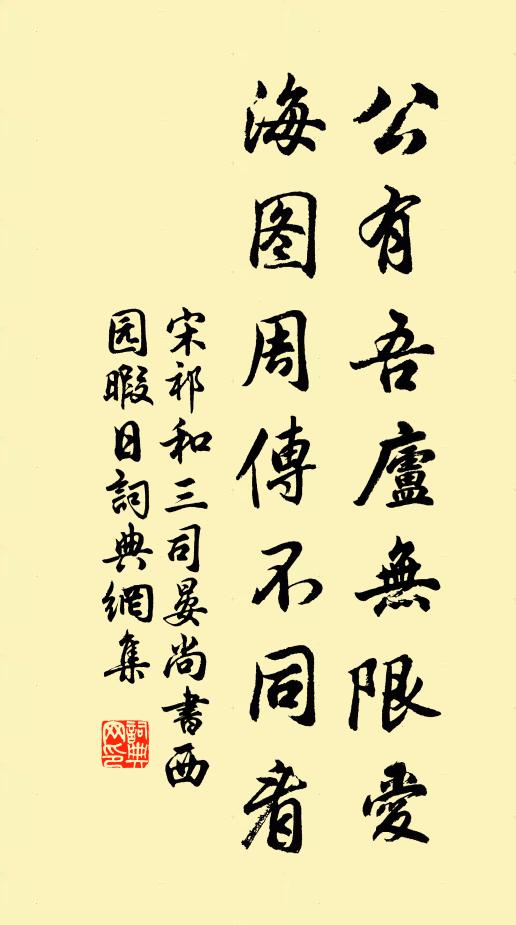 公有吾廬無限愛
海图周傳不同看
宋祁和三司晏尚書西
园暇日詞典網集
詞典
网印